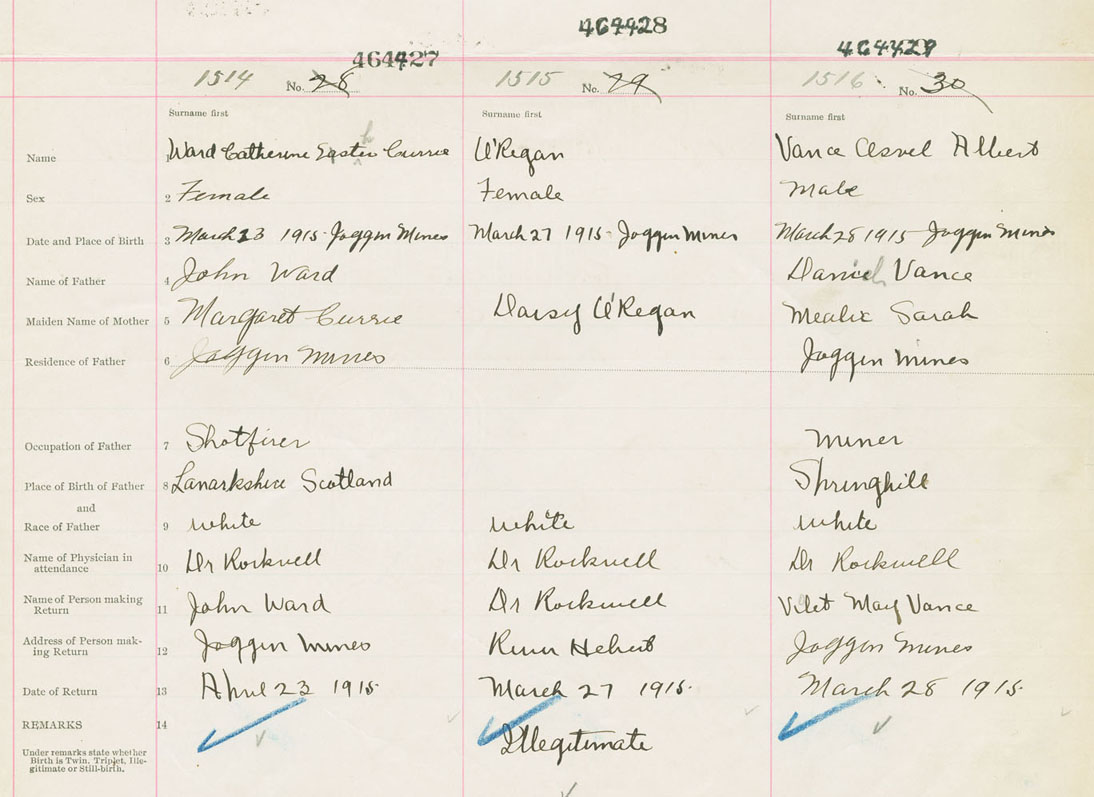 464428
464427 464429
1514 No. 28 1515 No. 29 1516 No. 30
Surname first Surname first Surname first
Name 1 Ward Catherine Easter Currie O'Regan Vance Albert
Sex 2 Female Female Male
Date and Place of Birth 3 March 23 1915 Joggin Mines March 27 1915 Joggin Mines March 28 1915 Joggin Mines
Name of Father 4 John Ward Daniel Vance
Maiden Name of Mother 5 Margaret Currie Daisy O'Regan Sarah
Residence of Father 6 Joggin Mines Joggin Mines
Occupation of Father 7 Shotfirer Miner
Place of Birth of Father 8 Lanarkshire Scotland Springhill
and
Race of Father 9 White White White
Name of Physician in
attendance 10 Dr Rockwell Dr Rockwell Dr Rockwell
Name of Person making
Return 11 John Ward Dr Rockwell May Vance
Address of Person mak-
ing Return 12 Joggin Mines River Hebert Joggin Mines
Date of Return 13 April 23 1915 March 27 1915 March 28 1915
REMARKS 14 Illegitimate
Under remarks state whether
Birth is Twin, Triplet, Ille-
gitimate or Still-birth.